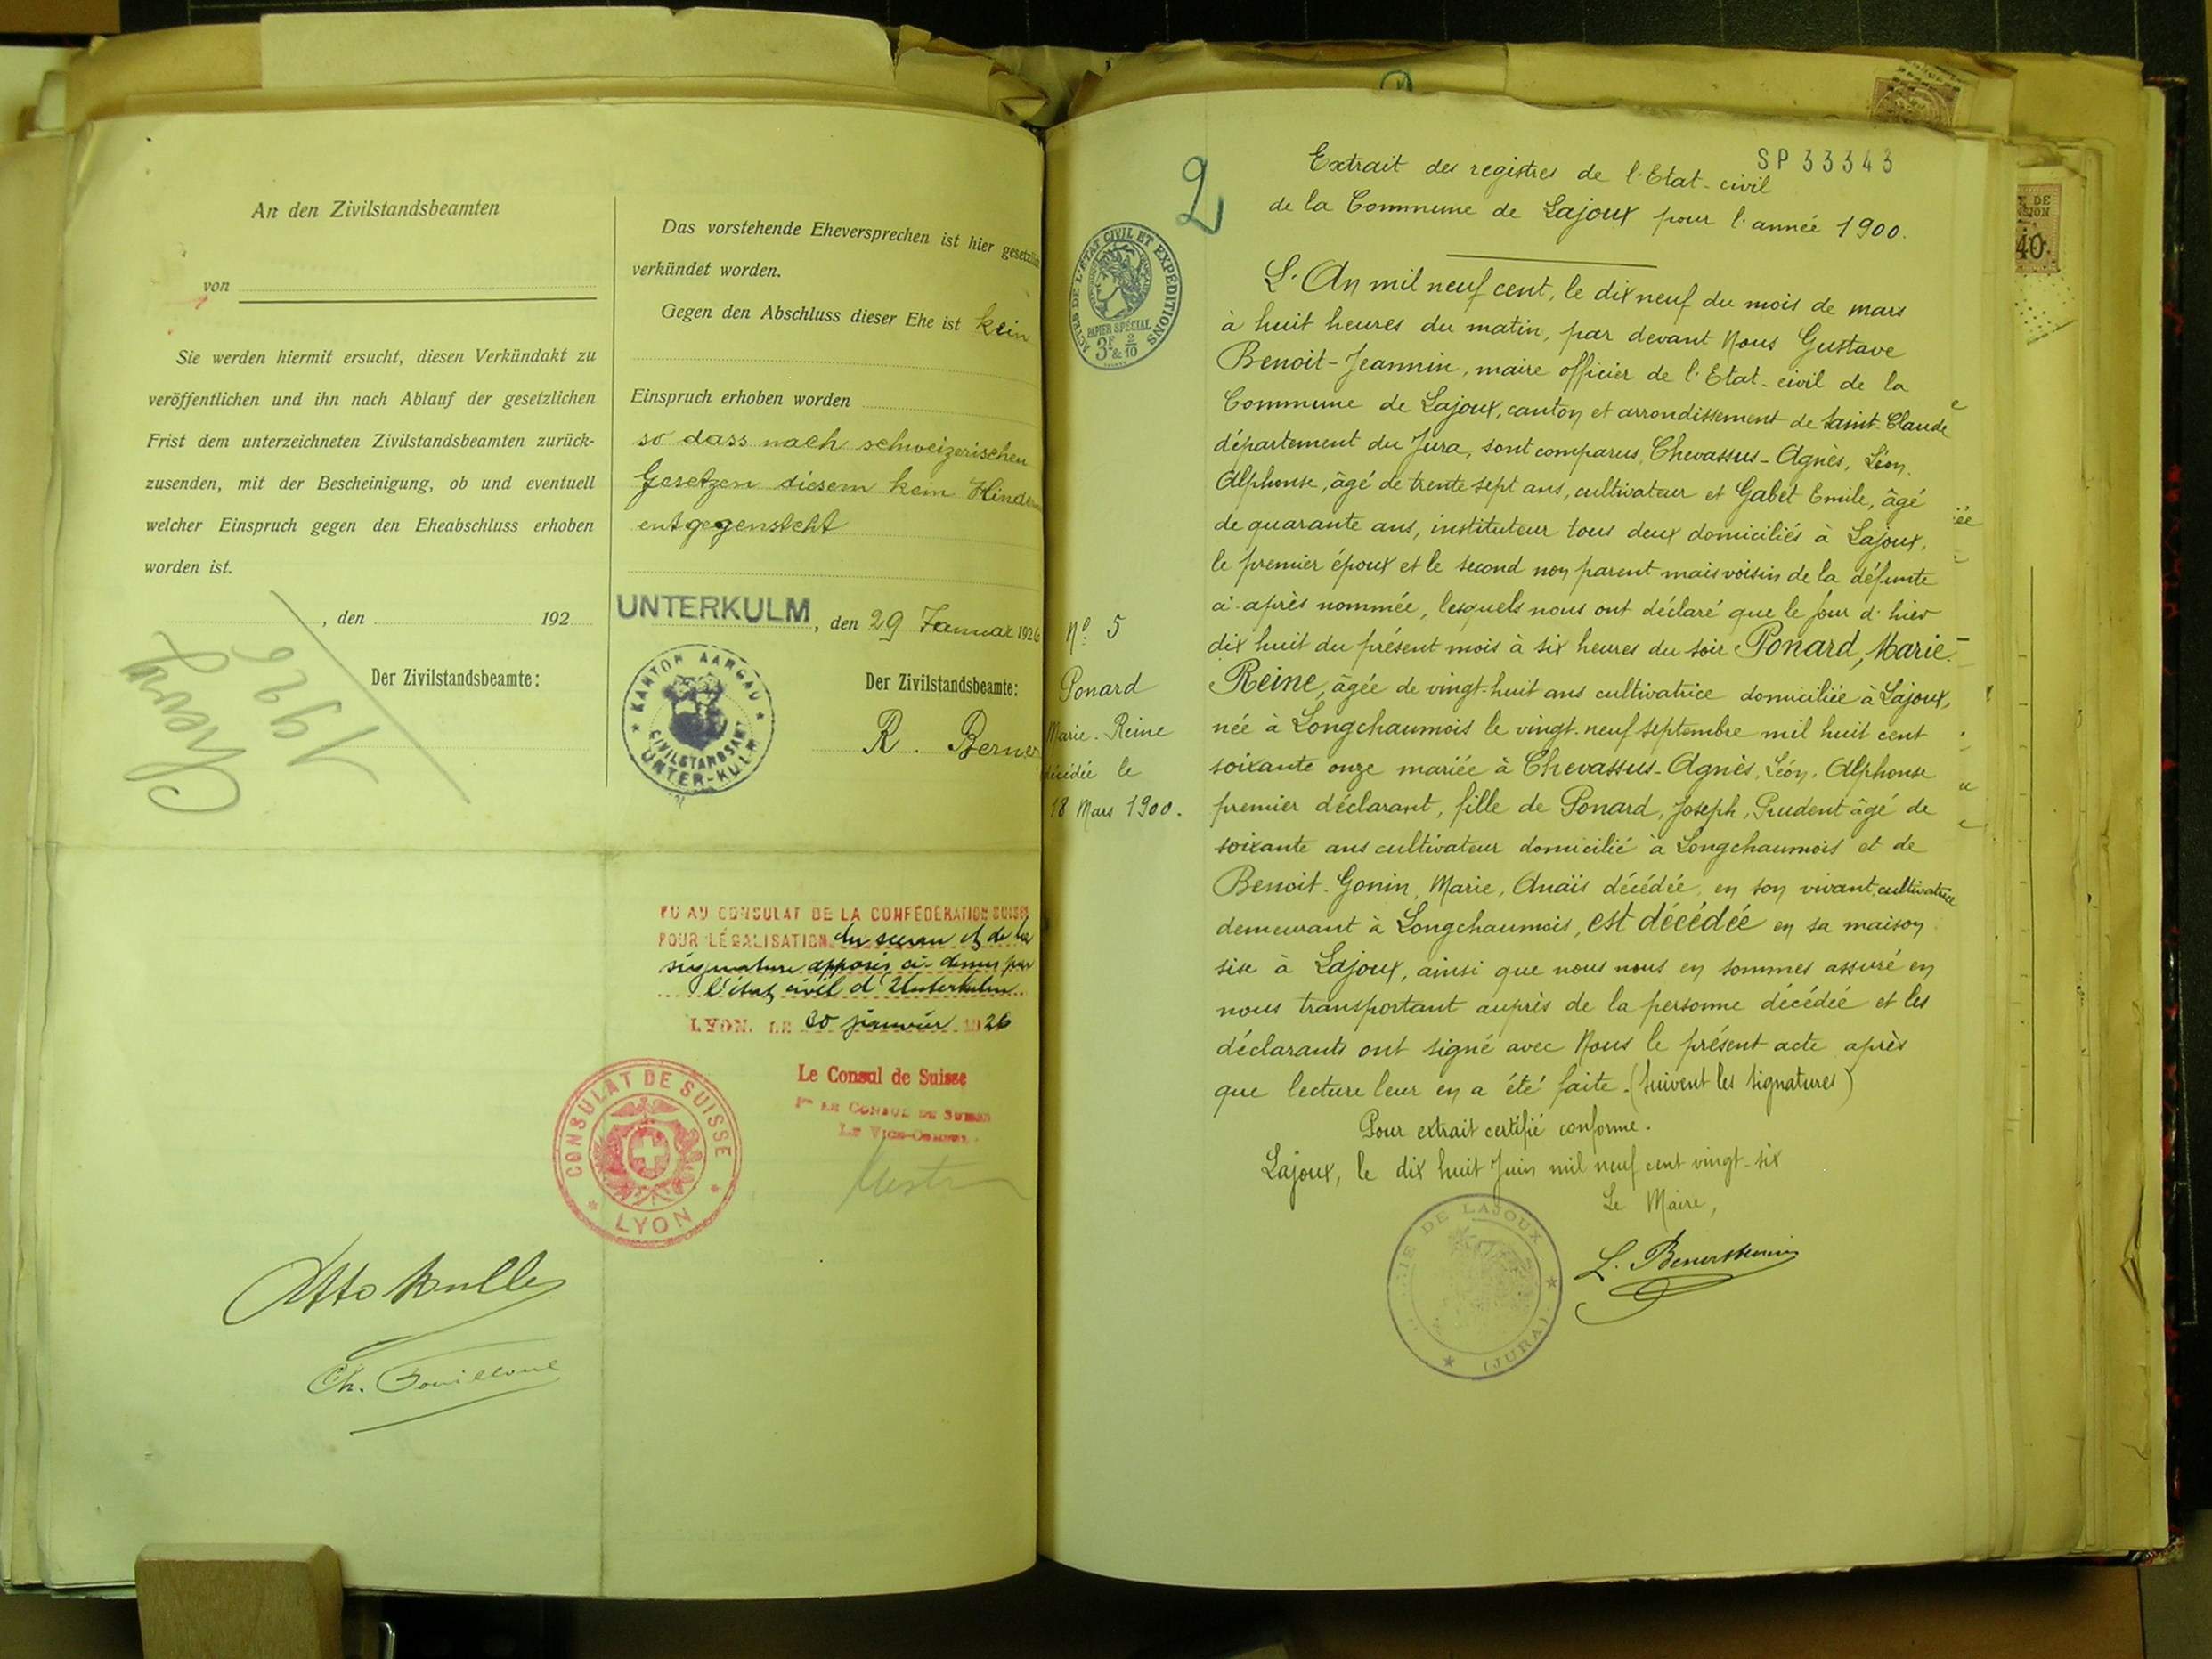 An den Zivilstandsbeamten
von
Sie werden hiermit ersucht, diesen Verkündakt zu
veröffentlichen und ihn nach Ablauf der gesetzlichen
Frist dem unterzeichneten Zivilstandsbeamten zurück-
zusenden, mit der Bescheinigung, ob und eventuell
welcher Einspruch gegen den Eheabschluss erhoben
worden ist.
, den 192
Der Zivilstandsbeamte:
1926
Das vorstehende Eheversprechen ist hier gesetzlich
verkündet worden.
Gegen den Abschluss dieser Ehe ist kein
Einspruch erhoben worden
so dass nach schweizerischen
Gesetzen diesem kein
entgegensteht
UNTERKULM, den 29 Januar 1926
KANTON AARGAU
CIVILSTANDSAMT
UNTER-KULM
Der Zivilstandsbeamte:
R. Berner
VU AU CONSULAT DE LA CONFÉDÉRATION SUISSE
POUR LÉGALISATION du sceau et de la
signature apposés ci-dessus par
l'état civil d'Unterkulm
LYON, LE 30 janvier 1926
Le Consul de Suisse
Pr LE CONSUL DE SUISSE
LE VICE-CONSUL
CONSULAT DE SUISSE
LYON
2
SP 33343
Extrait des registres de l'Etat-civil
de la Commune de Lajoux pour l'année 1900.
ACTES DE L'ÉTAT CIVIL ET EXPÉDITIONS
PAPIER SPÉCIAL
3F & 2/10
L'An mil neuf cent, le dix neuf du mois de mars
à huit heures du matin, par devant Nous Gustave
Benoit-Jeannin, maire officier de l'Etat-civil de la
Commune de Lajoux, canton et arrondissement de Saint-Claude
département du Jura, sont comparus, Chevassus-Agnès, Léon,
Alphonse, âgé de trente sept ans, cultivateur et Gabet Emile, âgé
de quarante ans, instituteur tous deux domiciliés à Lajoux,
le premier époux et le second non parent mais voisin de la défunte
ci-après nommée, lesquels nous ont déclaré que le jour d'hier
dix huit du présent mois à six heures du soir Ponard, Marie-
Reine, âgée de vingt-huit ans cultivatrice domiciliée à Lajoux,
née à Longchaumois le vingt-neuf septembre mil huit cent
soixante onze mariée à Chevassus-Agnès, Léon, Alphonse
premier déclarant, fille de Ponard, Joseph, Prudent âgé de
soixante ans cultivateur domicilié à Longchaumois et de
Benoit-Gonin, Marie, Anaïs décédée, en son vivant cultivatrice
demeurant à Longchaumois, est décédée en sa maison
sise à Lajoux, ainsi que nous nous en sommes assuré en
nous transportant auprès de la personne décédée et les
déclarants ont signé avec Nous le présent acte après
que lecture leur en a été faite. (Suivent les signatures)
Pour extrait certifié conforme.
Lajoux, le dix huit Juin mil neuf cent vingt-six
Le Maire,
DE LAJOUX
(JURA)
No 5
Ponard
Marie-Reine
décédée le
18 Mars 1900.
40